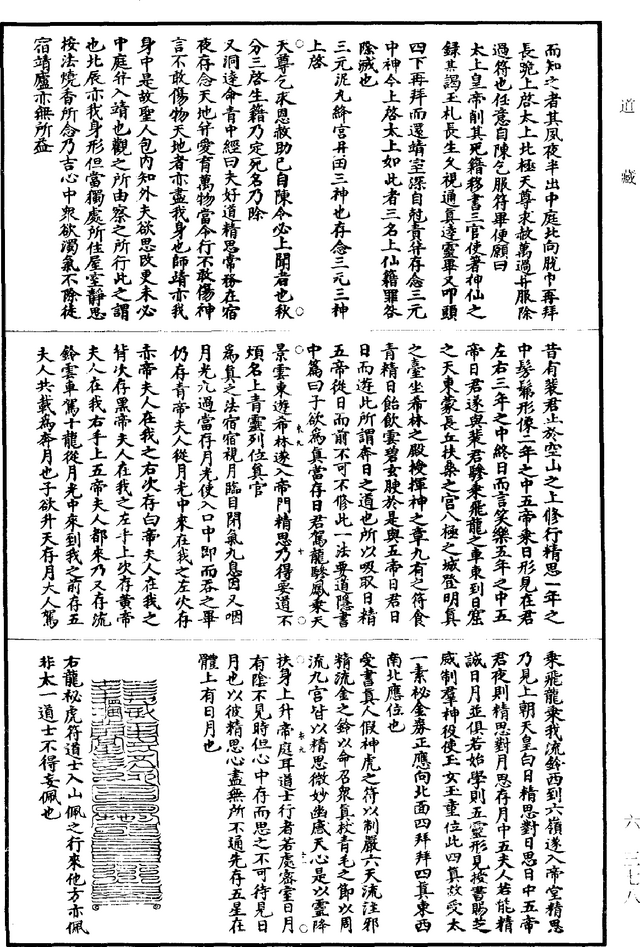 道藏
而知之者其夙夜半出中庭北向脫巾再拜
長跪上啓太上北極天尊求赦萬過并服除
過符也任意自陳乞服符畢便願曰
太上皇帝削其死籍移書三官使著神仙之
錄某謁玉札長生久視通真達靈畢又叩頭
四下再拜而還靖室深自剋責并存念三元
中神今上啓太上如此者三名上仙籍罪咎
除滅也
三元泥丸絳宮丹田三神也存念三元三神
上啓
天尊乞求恩赦助已自陳令必上聞者也秋
分三啓生籍乃定死名乃除
又洞達命青中經曰夫好道精思常務在宿
夜存念天地并愛育萬物當令行不敢傷神
言不敢傷物天地者亦盡我身也師靖亦我
身中是故聖人包內知外夫欲思改更未必
中庭并入靖也觀之所由察之所行此之謂
也北辰亦我身形但當獨處所住屋室靜思
按法燒香所念乃吉心中衆欲濁氣不除徒
宿靖廬亦無所益
昔有裴君止於空山之上修行精思一年之
中髣髴形像二年之中五帝乘日形見在君
左右三年之中終日而言笑樂五年之中五
帝日君遂與裴君驂乘飛龍之車東到日窟
之天東蒙長丘扶桑之宮八極之城登明真
之臺坐希林之殿授揮神之章九有之符食
青精日飴飲雲碧玄腴於是與五帝日君日
日而遊此所謂奔日之道也所以吸取日精
五帝從日而前不可不修此一法要道隱書
中篇曰子欲爲真當存日君駕龍驂鳳乘天
景雲東遊希林遂入帝門精思乃得要道不
煩名上青靈列位真官
爲真之法宿宿視月臨目閉氣九息因又咽
月光九過當存月光使入口中即而吞之畢
仍存青帝夫人從月光中來在我之左次存
赤帝夫人在我之右次存白帝夫人在我之
背次存黑帝夫人在我之左手上次存黃帝
夫人在我右手上五帝夫人都來乃又存流
鈴雲車駕十龍從月光中來到我之前存五
夫人共載爲奔月也子欲升天存月夫人駕
乘飛龍乘我流鈴西到六嶺遂入帝堂精思
乃見上朝天皇白日精思對日思日中五帝
君夜則精思對月思存月中五夫人若能精
誠日月並俱若始學則五靈形見按書賜芝
威制羣神役使玉女玉童位此四真故受太
一素祕金券正應向北面四拜拜四真東西
南北應位也
受書真人假神虎之符以制嚴六天流注邪
精流金之鈴以命召衆真杖青毛之節以周
流九宮皆以精思微妙幽感天心是以靈降
扶身上升帝庭耳道士行者若處密室日月
有陰不見時但心中存而思之不可待見日
月也以彼精思心盡無所不通先存五星在
體上有日月也
右龍秘虎符道士入山佩之行來他方亦佩
非太一道士不得妄佩也
六—三七八